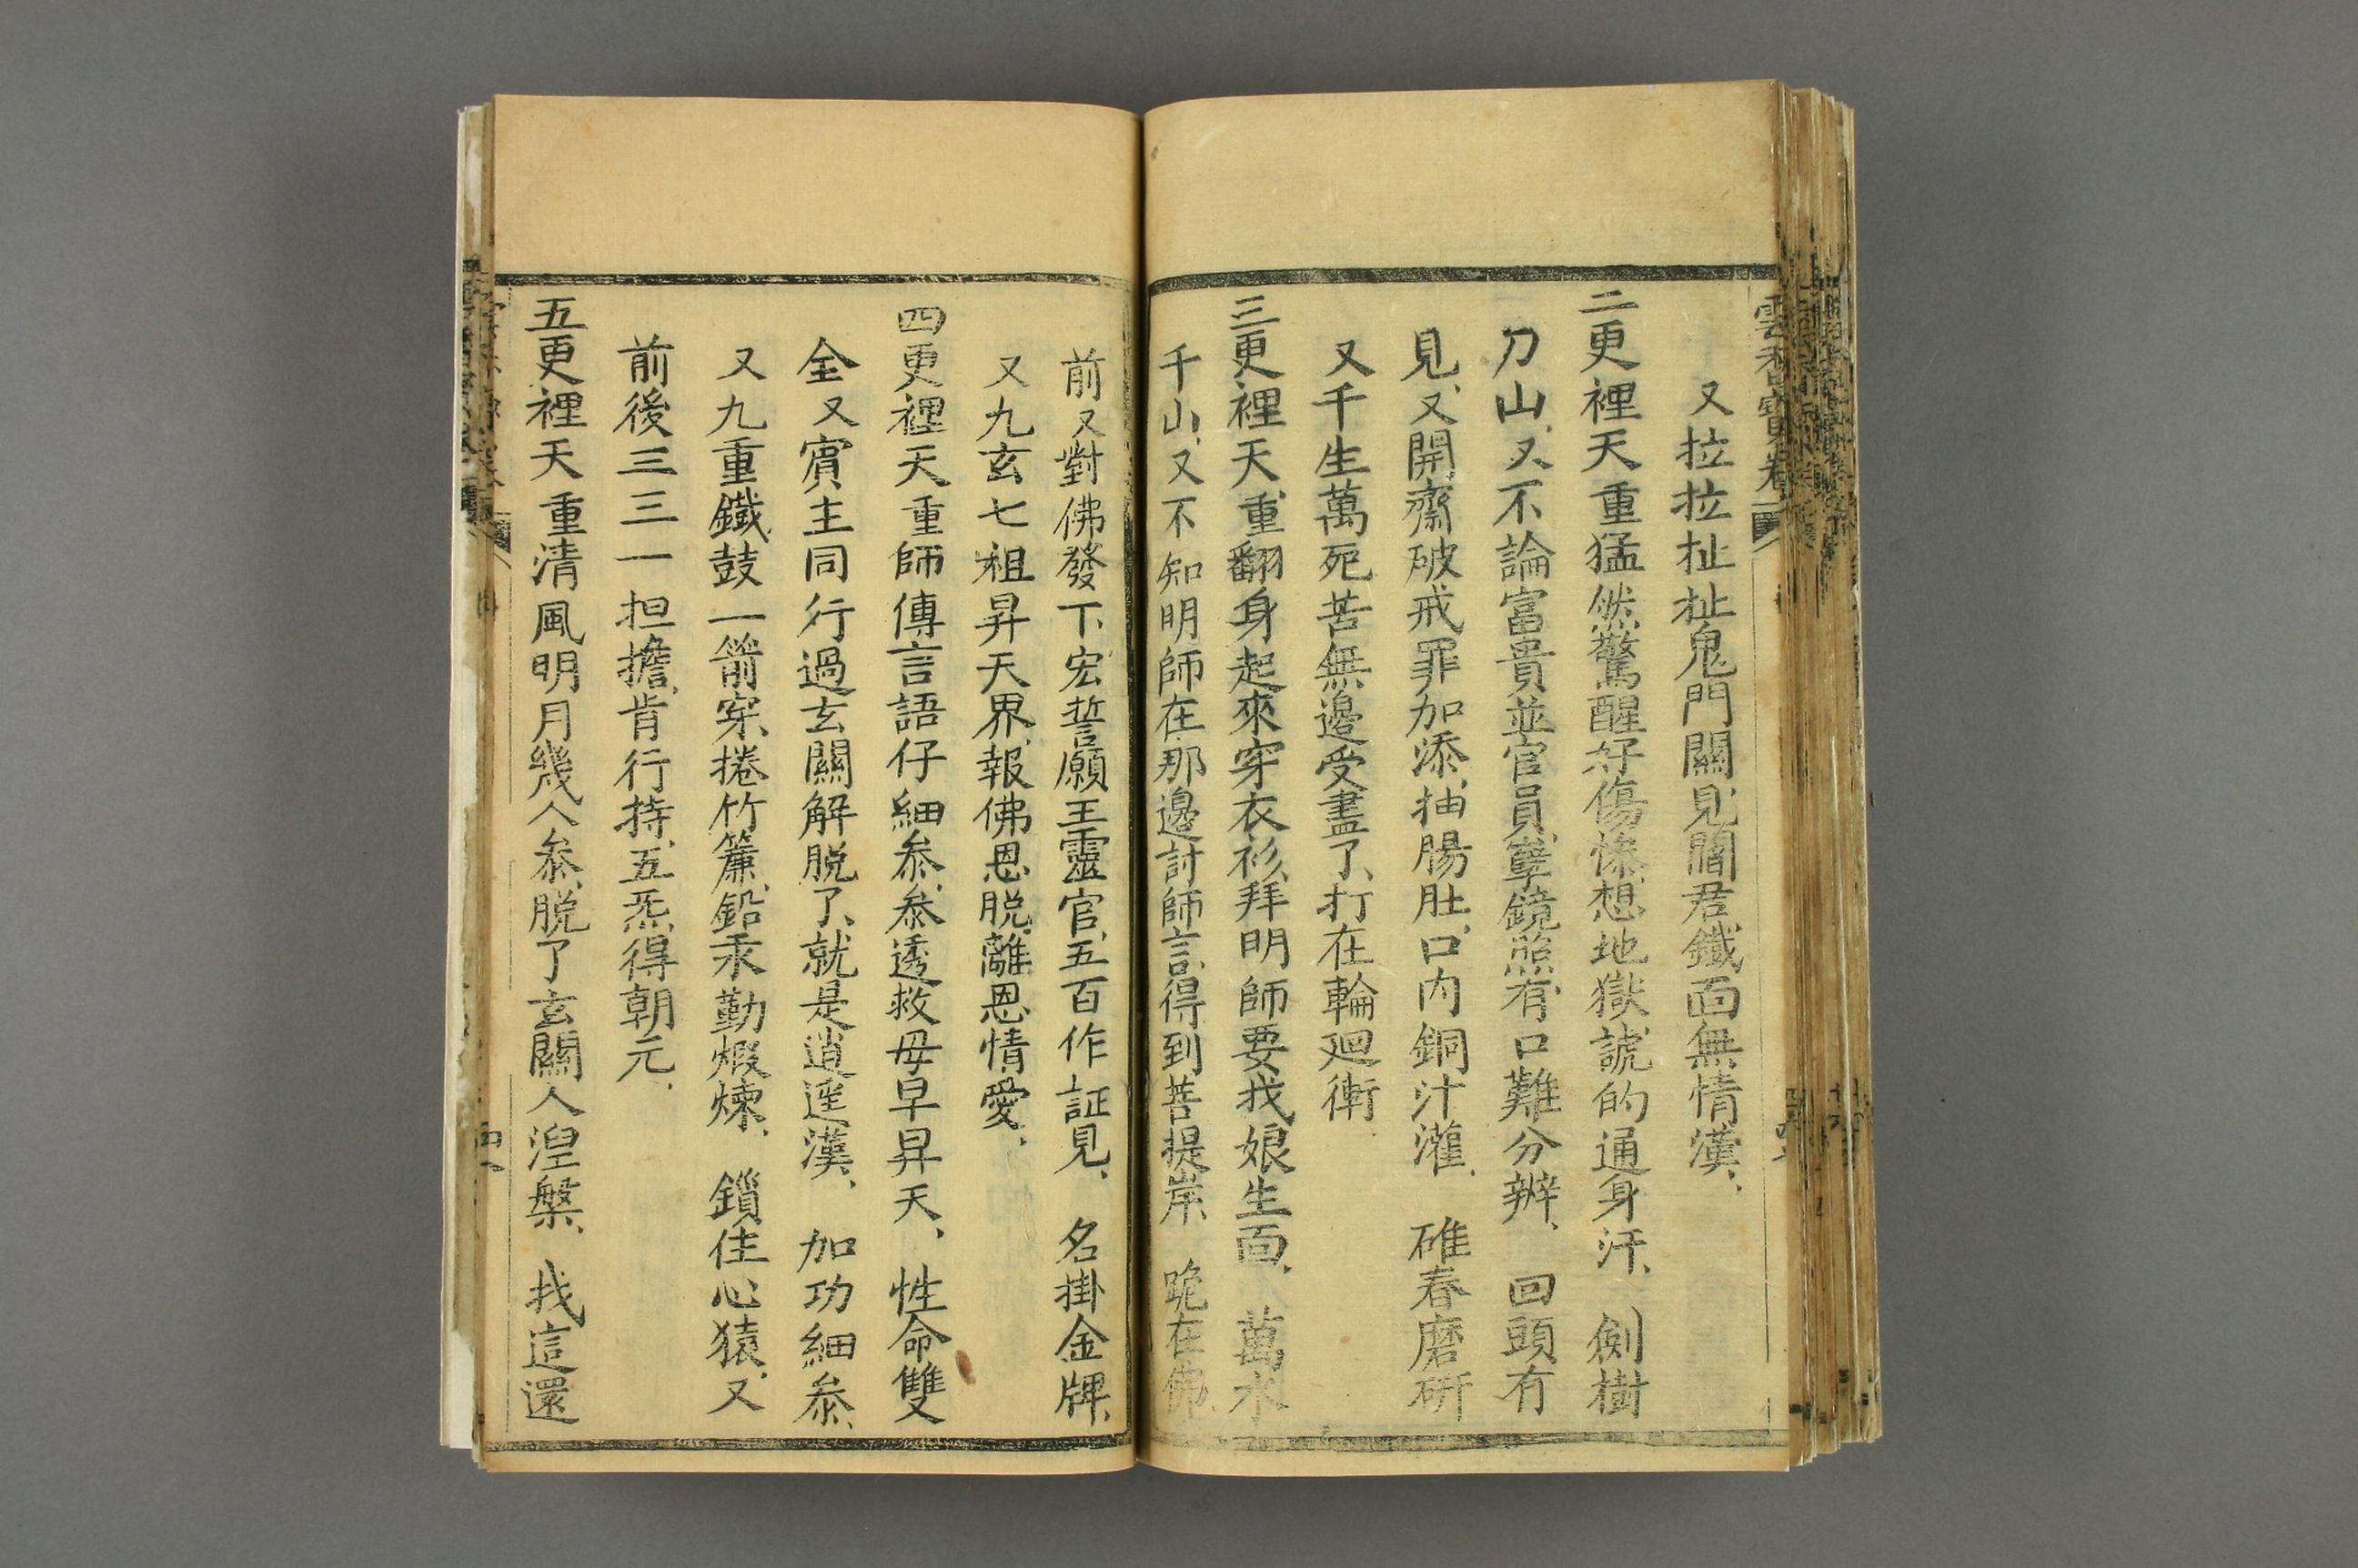 又拉拉扯扯鬼門關見閻君、鐵面無情漢、
二更裡天重猛然驚醒好傷慘、想地獄諕的通身汗、劍樹
刀山、又不論富貴並官員、孽鏡照、有口難分辨、回頭有
見、又開齋破戒罪加添、抽腸肚、口內銅汁灌、碓舂磨研
又千生萬死苦無邊受盡了、打在輪廻衝
三更裡天重翻身起來穿衣衫、拜明師要我娘生面、萬水
千山、又不知明師在那邊討師言、得到菩提岸、跪在佛
前又對佛發下、宏誓願王靈官、五百作証見、名掛金牌、
又九玄七祖昇天界、報佛恩、脱離恩情愛、
四更裡天重師傳言語仔細叅、叅透救母早昇天、性命雙
全又賓主同行過玄關解脱了、就是逍遥漢、加功細叅、
又九重鐵鼓一箭穿、捲竹簾、鉛汞勤煆煉、鎖住心猿、又
前後三三一担擔、肯行持、五炁得朝元、
五更裡天重清風明月幾人叅、脱了玄關人湼槃、我這還